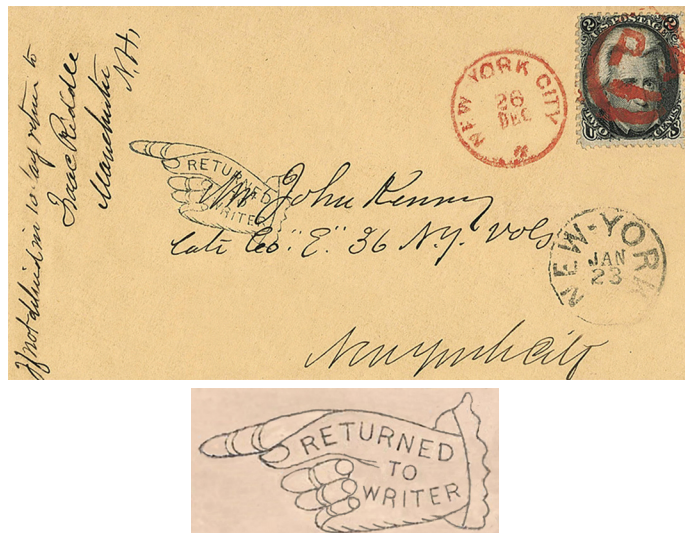 If not delivd in 10 day return to
Isaac Riddle
Manchester
N.H,
NEW YORK CITY
26
DEC
U.S. POSTAGE
2 2
RETURNED
TO
WRITER
Mr John Kenny
late Co "E" 36 N.Y. Vols
New York City
NEW-YORK
JAN
23
RETURNED
TO
WRITER